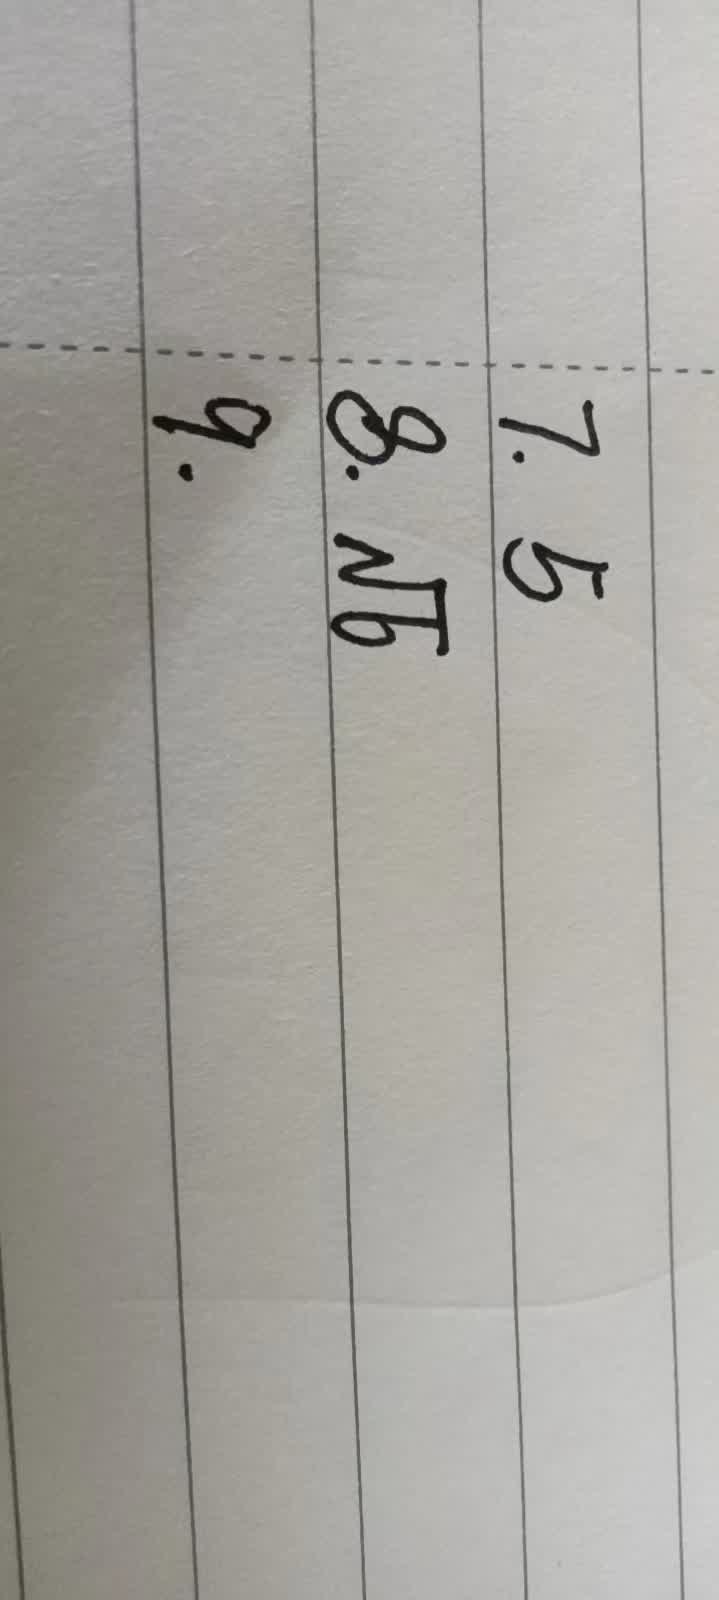 7. 5
8. √6
9.